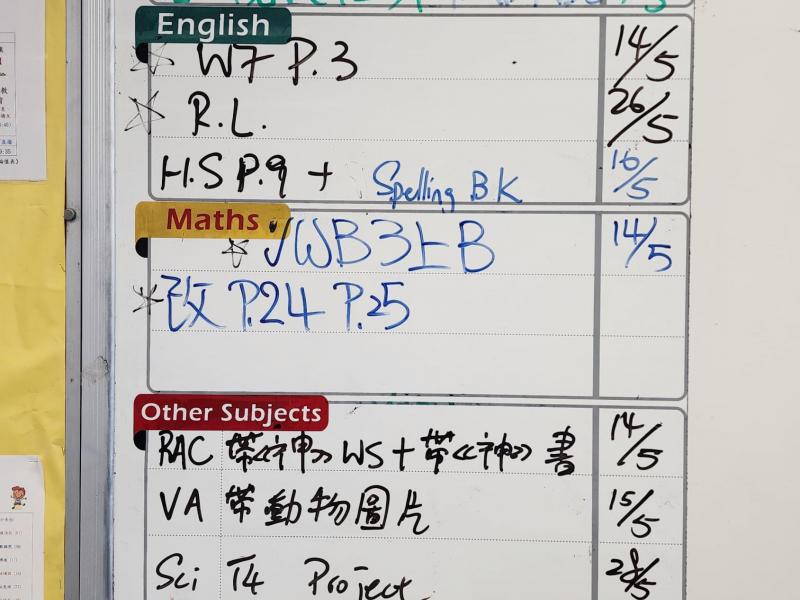 English
☆ W7 P.3 14/5
☆ R.L. 26/5
H.S P.9 + Spelling BK 16/5
Maths
☆ √WB3上B 14/5
☆ 改 P.24 P.25
Other Subjects
RAC 帶《神》WS + 帶《神》書 14/5
VA 帶動物圖片 15/5
Sci T4 Project 28/5